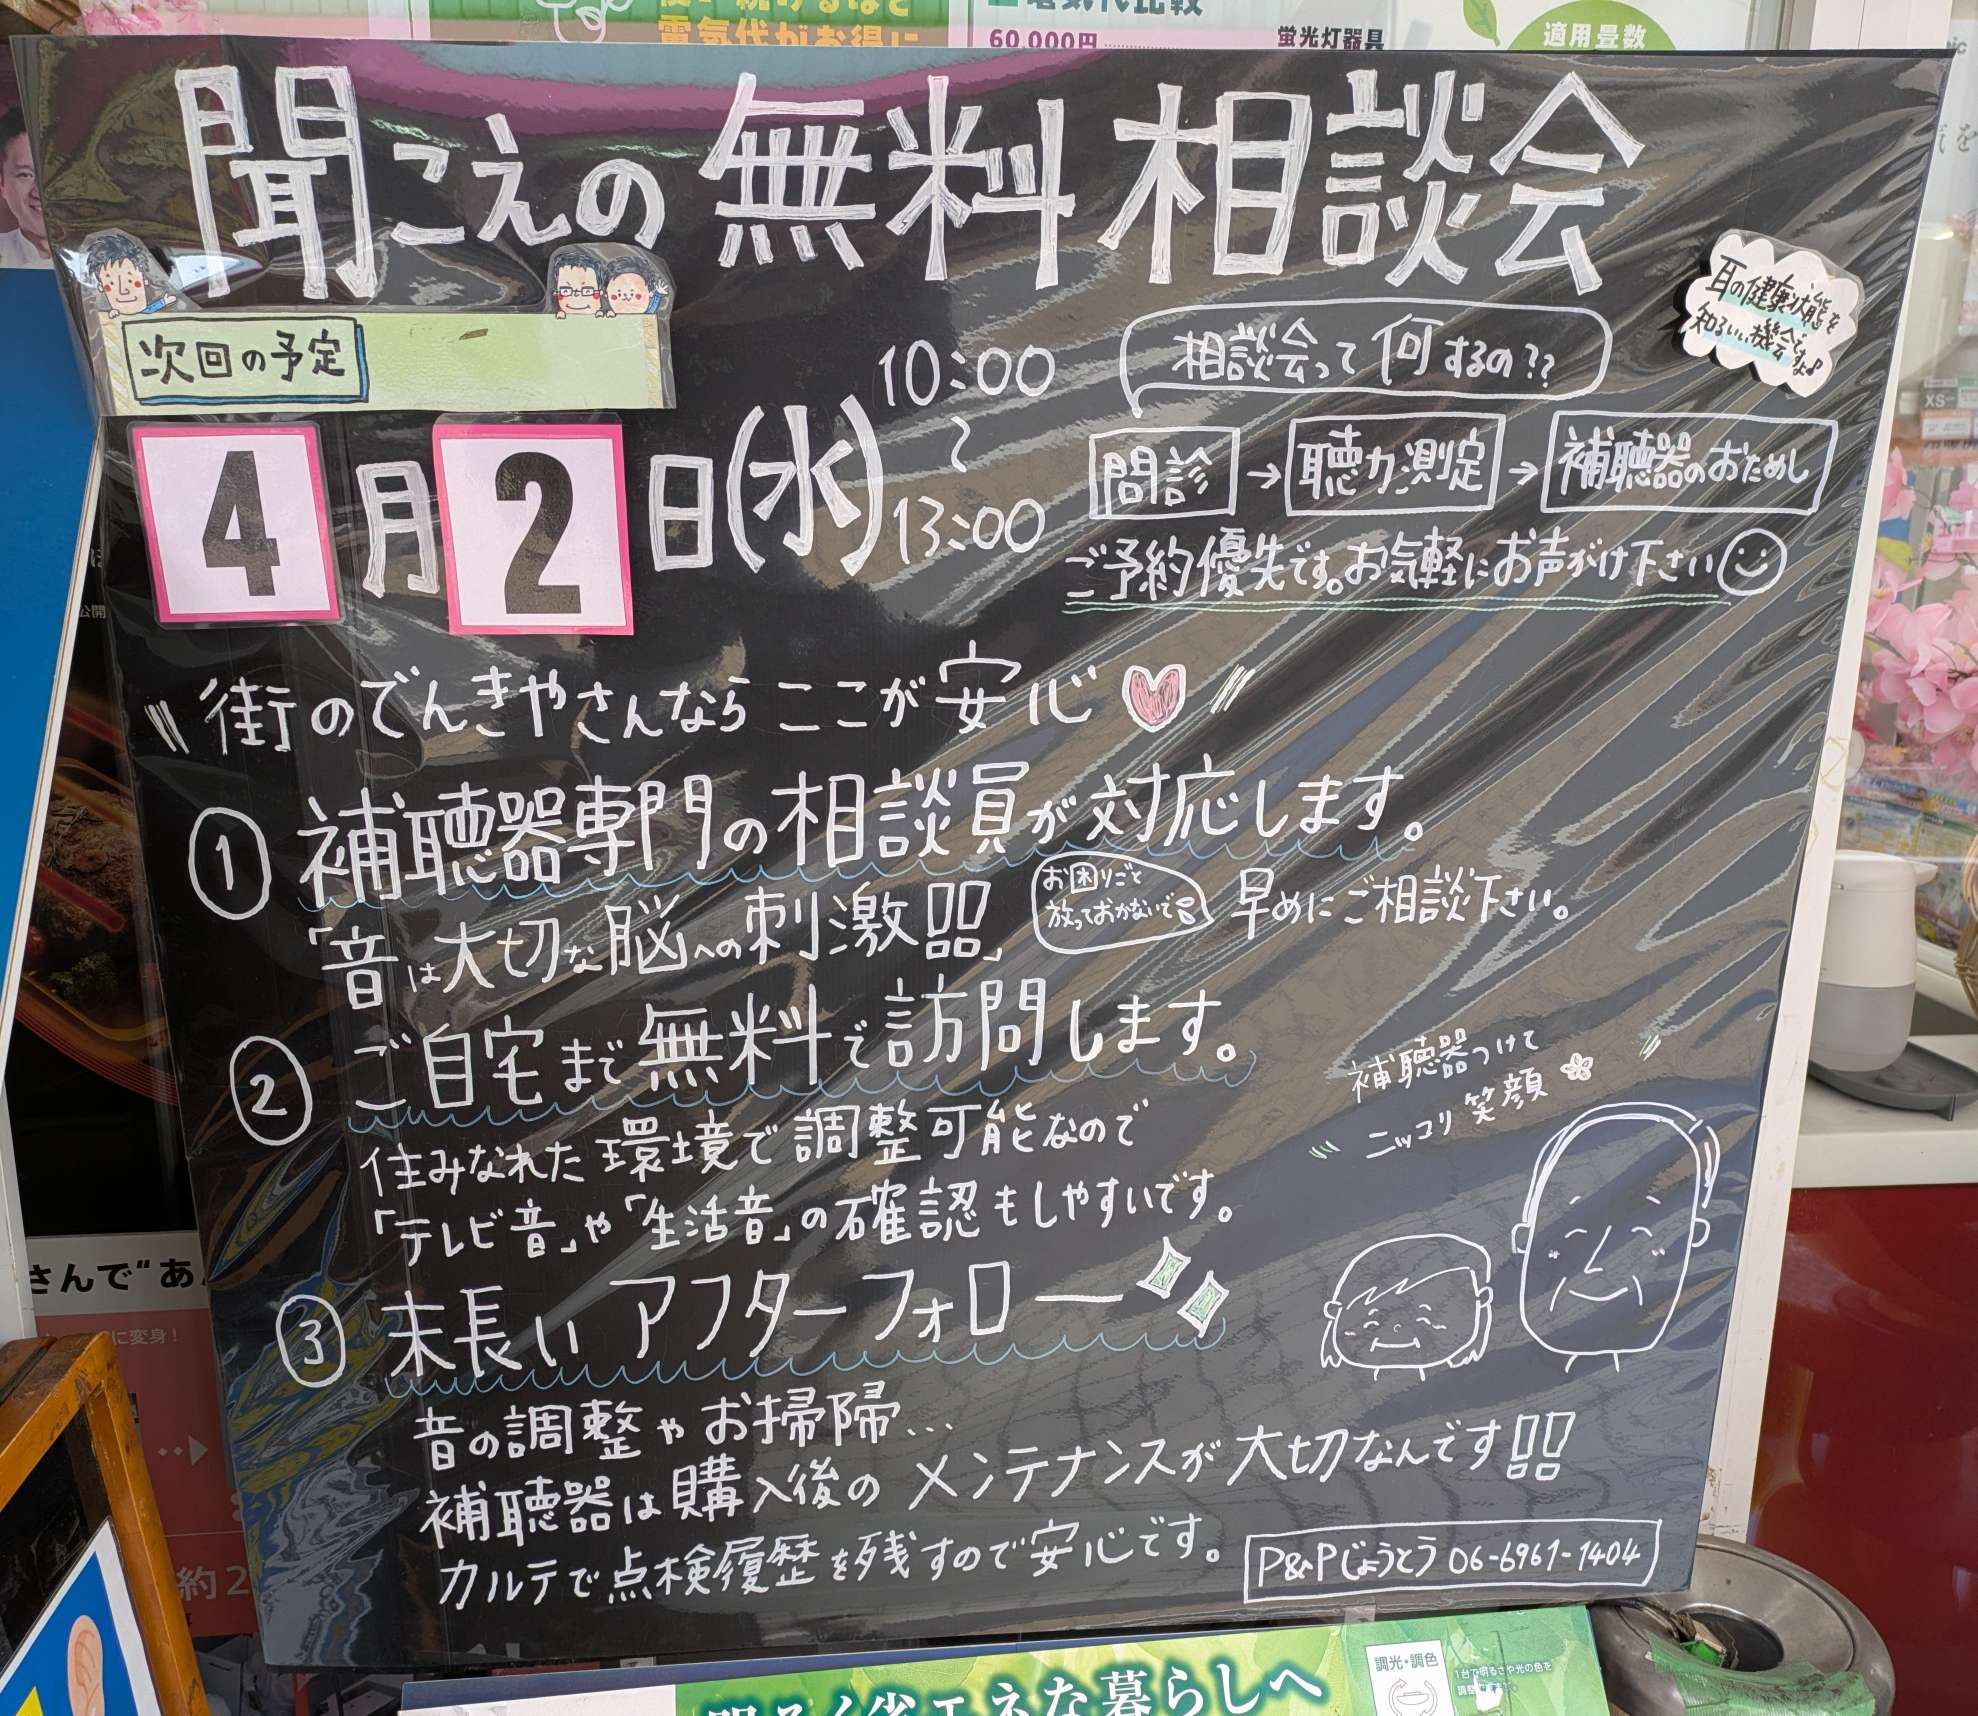 電気代がお得に
電気代比較
60,000円
蛍光灯器具
適用畳数
聞こえの無料相談会
耳の健康状態を
知るいい機会ですよ♪
次回の予定
4月2日(水)
10:00
〜
13:00
相談会って何するの??
問診→聴力測定→補聴器のおためし
ご予約優先です。お気軽にお声がけ下さい
街のでんきやさんなら ここが安心
① 補聴器専門の相談員が対応します。
「音は大切な脳への刺激」
お困りごと
放っておかないで
早めにご相談下さい。
② ご自宅まで無料で訪問します。
住みなれた環境で調整可能なので
「テレビ音」や「生活音」の確認もしやすいです。
補聴器つけて
ニッコリ笑顔
③ 末長い アフターフォロー
音の調整やお掃除...
補聴器は購入後のメンテナンスが大切なんです!!
カルテで点検履歴を残すので安心です。
P&Pじょうとう 06-6961-1404
さんで“あ
に変身!
約2
公開
XS-
調光・調色
1台で明るさや光の色を
省エネな暮らしへ